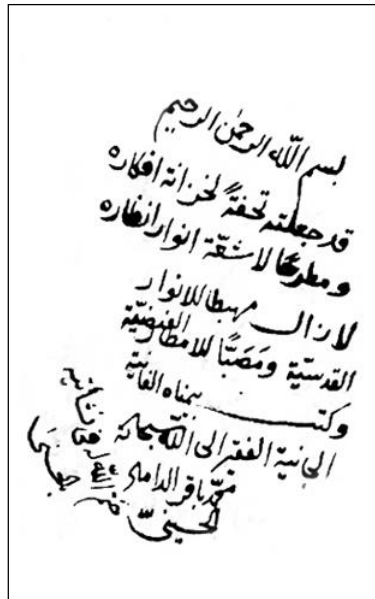 بسم الله الرحمن الرحيم
قد جعلته تحفةً لخزانة افكاره
ومطرحًا لاشعّة انوار انظاره
لا زال مهبطا للانوار
القدسيّة ومَصَبًّا للامطار الفيضيّة
وكتب بيمناه الفانية
الجانية الفقير الى الله سبحانه
محمّد باقر الداماد
الحسينيّ